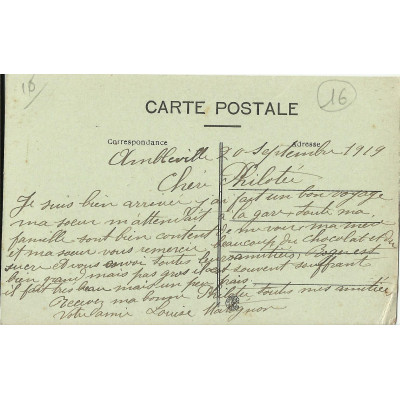 16
16
CARTE POSTALE
Correspondance
Adresse
Ambleville 20 septembre 1919
Chère Philotée
Je suis bien arrivée j'ai fait un bon voyage
ma sœur m'attendait à la gare toute ma
famille sont bien content de me voir ma mère
et ma sœur vous remercie beaucoup du chocolat et du
sucre et vous envoi toutes leurs amitiées
bien grand mais pas gros il est souvent souffrant
il fait très beau mais un peu frais
Recevez ma bonne Philotée toutes mes amitiées
Votre amie Louise